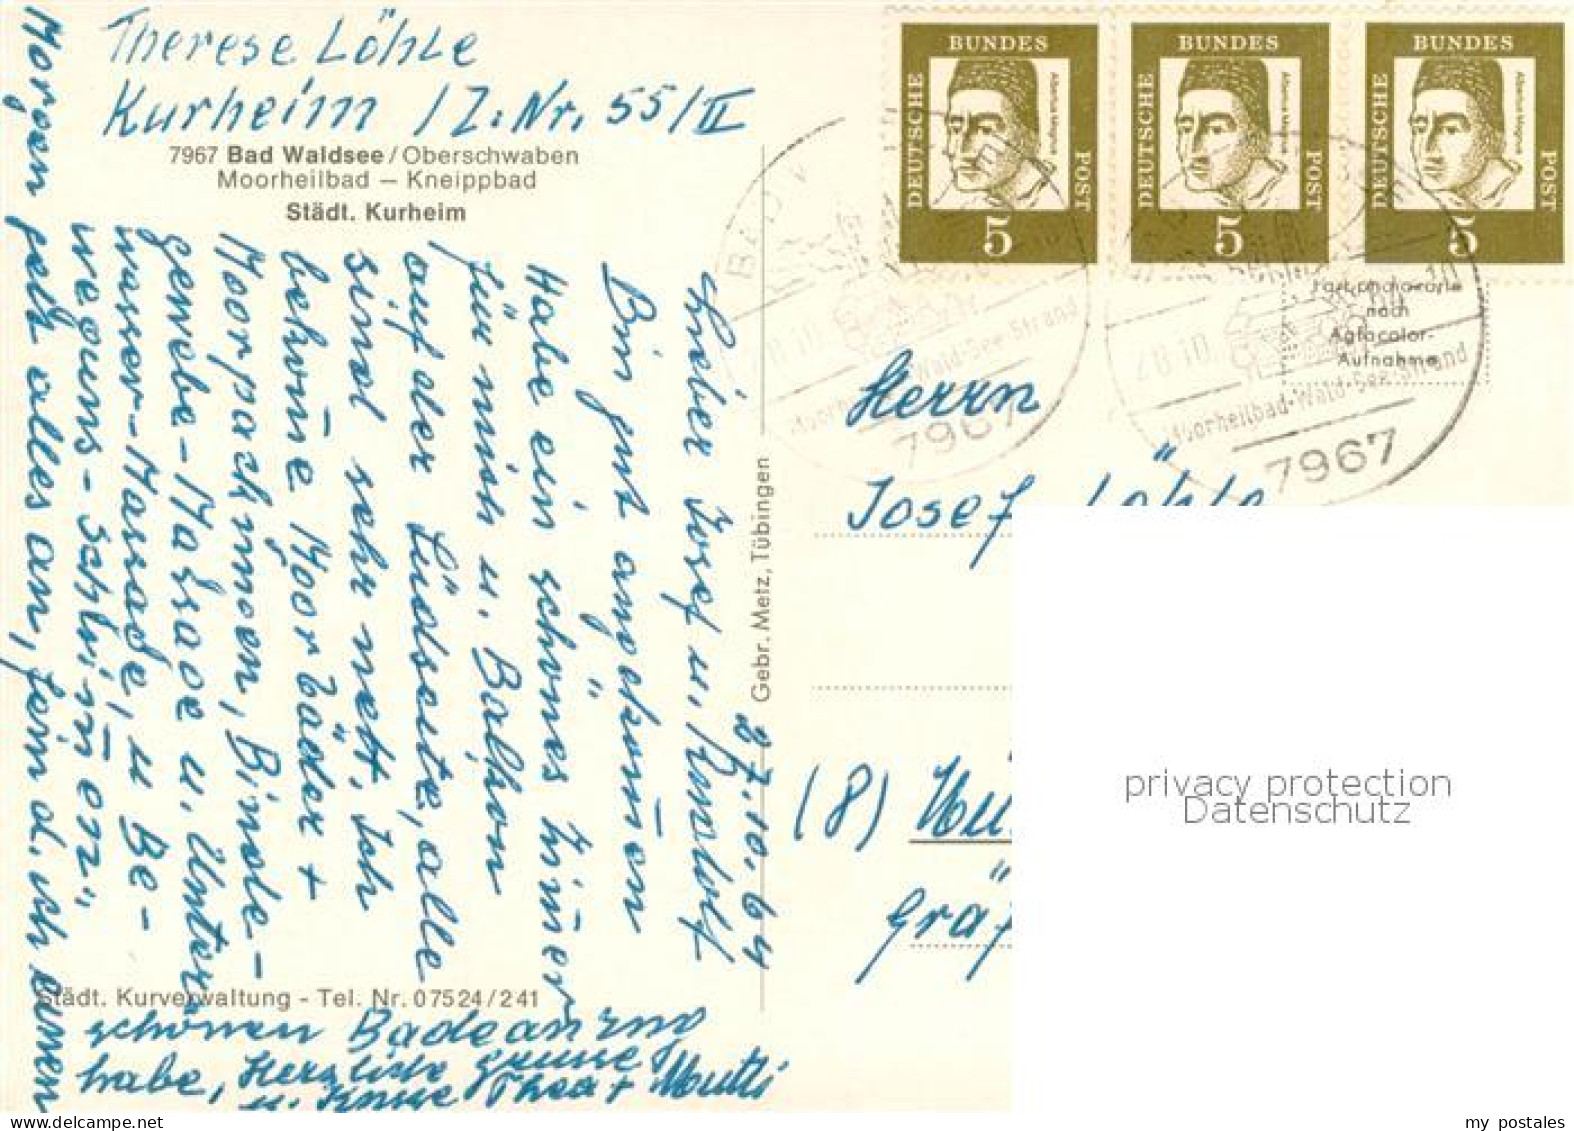 Therese Löhle
Kurheim / Z. Nr. 55/II
7967 Bad Waldsee / Oberschwaben
Moorheilbad – Kneippbad
Städt. Kurheim
27.10.64
Lieber Josef u. Rudolf
Bin gut angekom̄en
Habe ein schönes Zim̄er
für mich u. Balkon
auf der Südseite, alle
sind sehr nett. Ich
bekom̄e Moorbäder +
Moorpackungen, Binde-
gewebe-Massage u. Unter-
wasser-Massage, u Be-
wegungs-Schwim̄en"
Morgen geht alles an, fein d. ich einen
schönen Badeanzug
habe, Herzliche Grüsse
u. Küsse Thea + Mutti
Städt. Kurverwaltung - Tel. Nr. 07524/241
Gebr. Metz, Tübingen
BUNDES
DEUTSCHE
POST
Albertus Magnus
5
BUNDES
DEUTSCHE
POST
Albertus Magnus
5
BUNDES
DEUTSCHE
POST
Albertus Magnus
5
BAD W
28.10.
Wald-See-Strand
7967
28.10.
-10
Moorheilbad-Wald-See-Strand
7967
nach
Agfacolor-
Aufnahme
Herrn
Josef Löhle
(8)
privacy protection
Datenschutz
www.delcampe.net
my postales